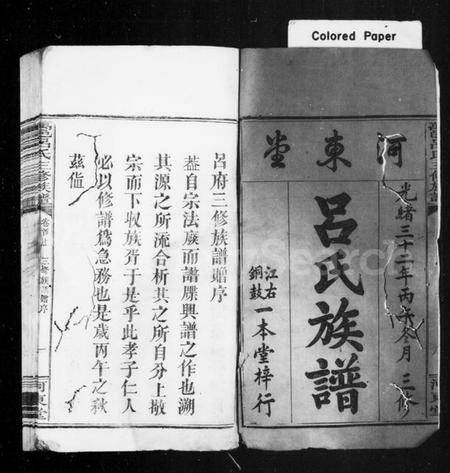 Colored Paper
河東堂
光緒三十二年丙午冬月三修
呂氏族譜
江右
銅鼓
一本堂梓行
河東堂
呂府三修族譜贈序
蓋自宗法廢而譜牒興譜之作也溯
其源之所流合析其之所自分上敬
宗而下收族胥于是乎此孝子仁人
必以修譜爲急務也是歲丙午之秋
茲値
呂氏三修族譜
河東堂